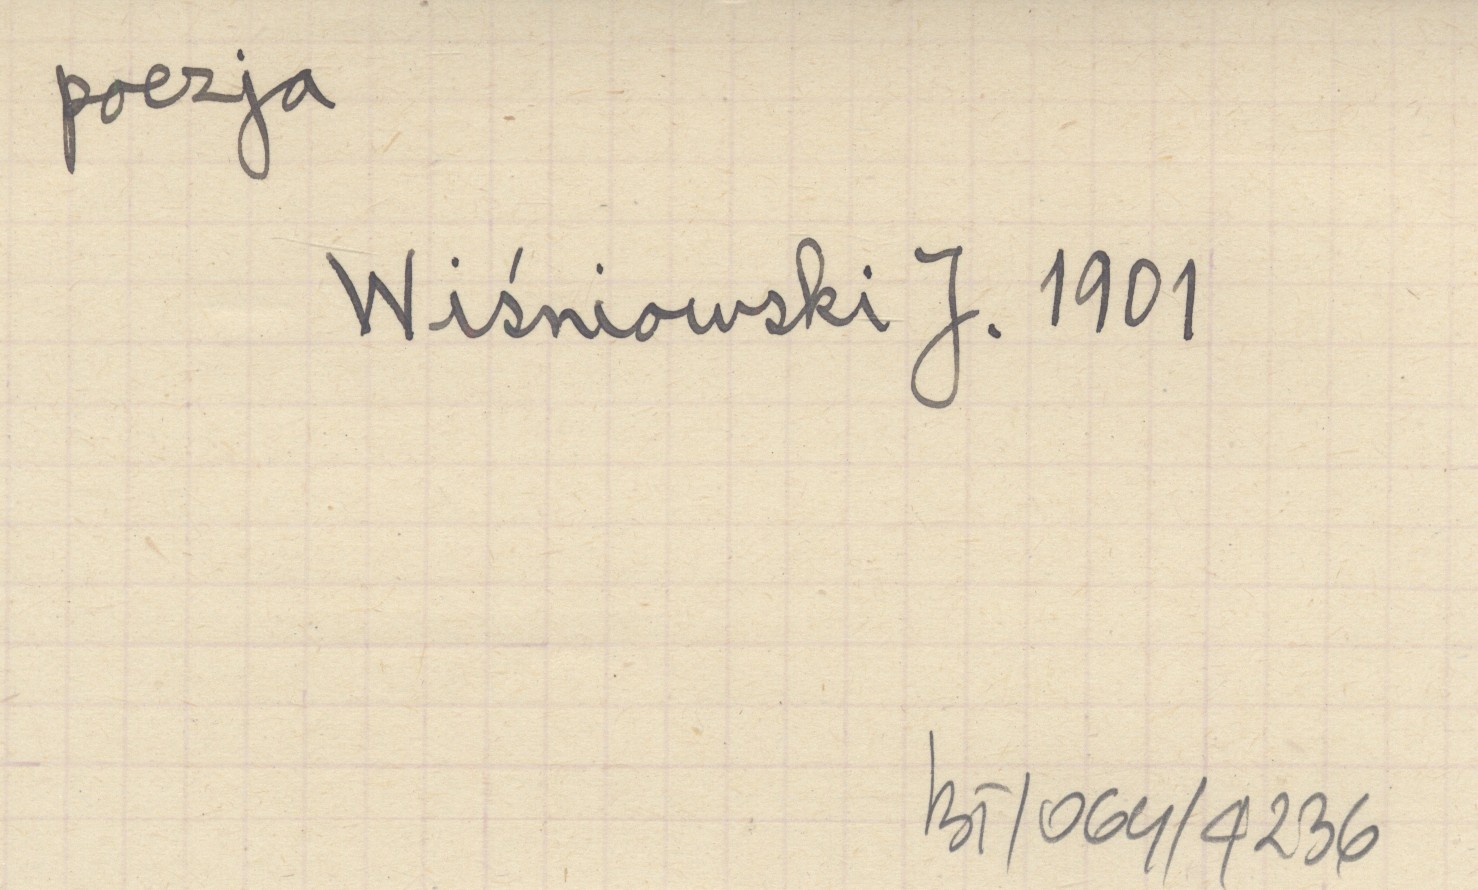 poezja
Wiśniowski J. 1901
BT/064/4236